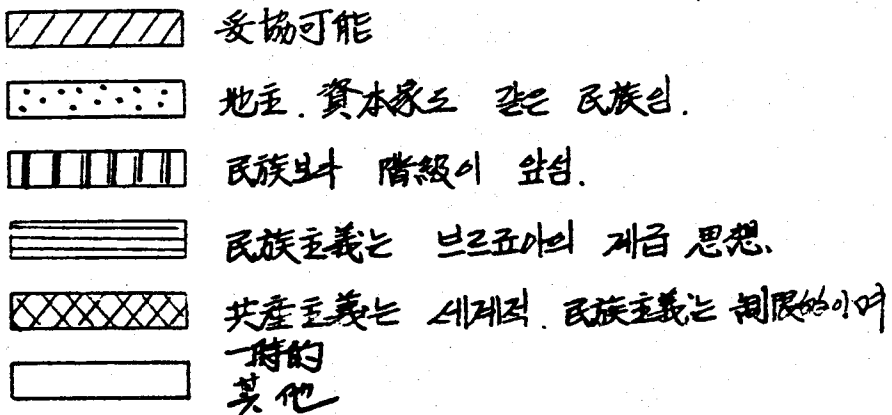 妥協可能
地主. 資本家도 같은 民族임.
民族보다 階級이 앞섬.
民族主義는 브르죠아의 계급 思想.
共産主義는 세계적. 民族主義는 制限的이며
一時的
其他